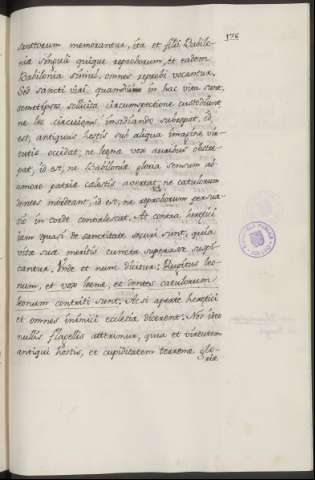 178
sanctorum memorantur, ita et filii Babilo-
niæ singuli quique reproborum, et eadem
Babilonia simul omnes reprobi vocantur.
Sed sancti viri quamdiu in hac vita sunt
semetipsos sollicita circumspectione custodiunt
ne leo circuiens insidiando subrepat, id
est, antiquus hostis sub aliqua imagine vir-
tutis occidat, ne leenæ vox auribus obstre-
pat, id est, ne Babiloniæ gloria sensum ab
amore patriæ cælestis avertat, ne catulorum
dentes mordeant, id est, ne reproborum persua-
sio in corde convalescat. At contra hæretici
iam quasi de sanctitate securi sunt, quia
vitæ suæ meritis cuncta superasse suspi-
cantur. Unde et nunc dicitur: Rugitus leo-
num, et vox leenæ, et dentes catulorum
leonum contriti sunt. Ac si aperte hæretici
et omnes inimici ecclesiæ dicerent. Nos ideo
nullis flagellis atterimur, quia et virtutem
antiqui hostis, et cupiditatem terrenæ glo-
riæ